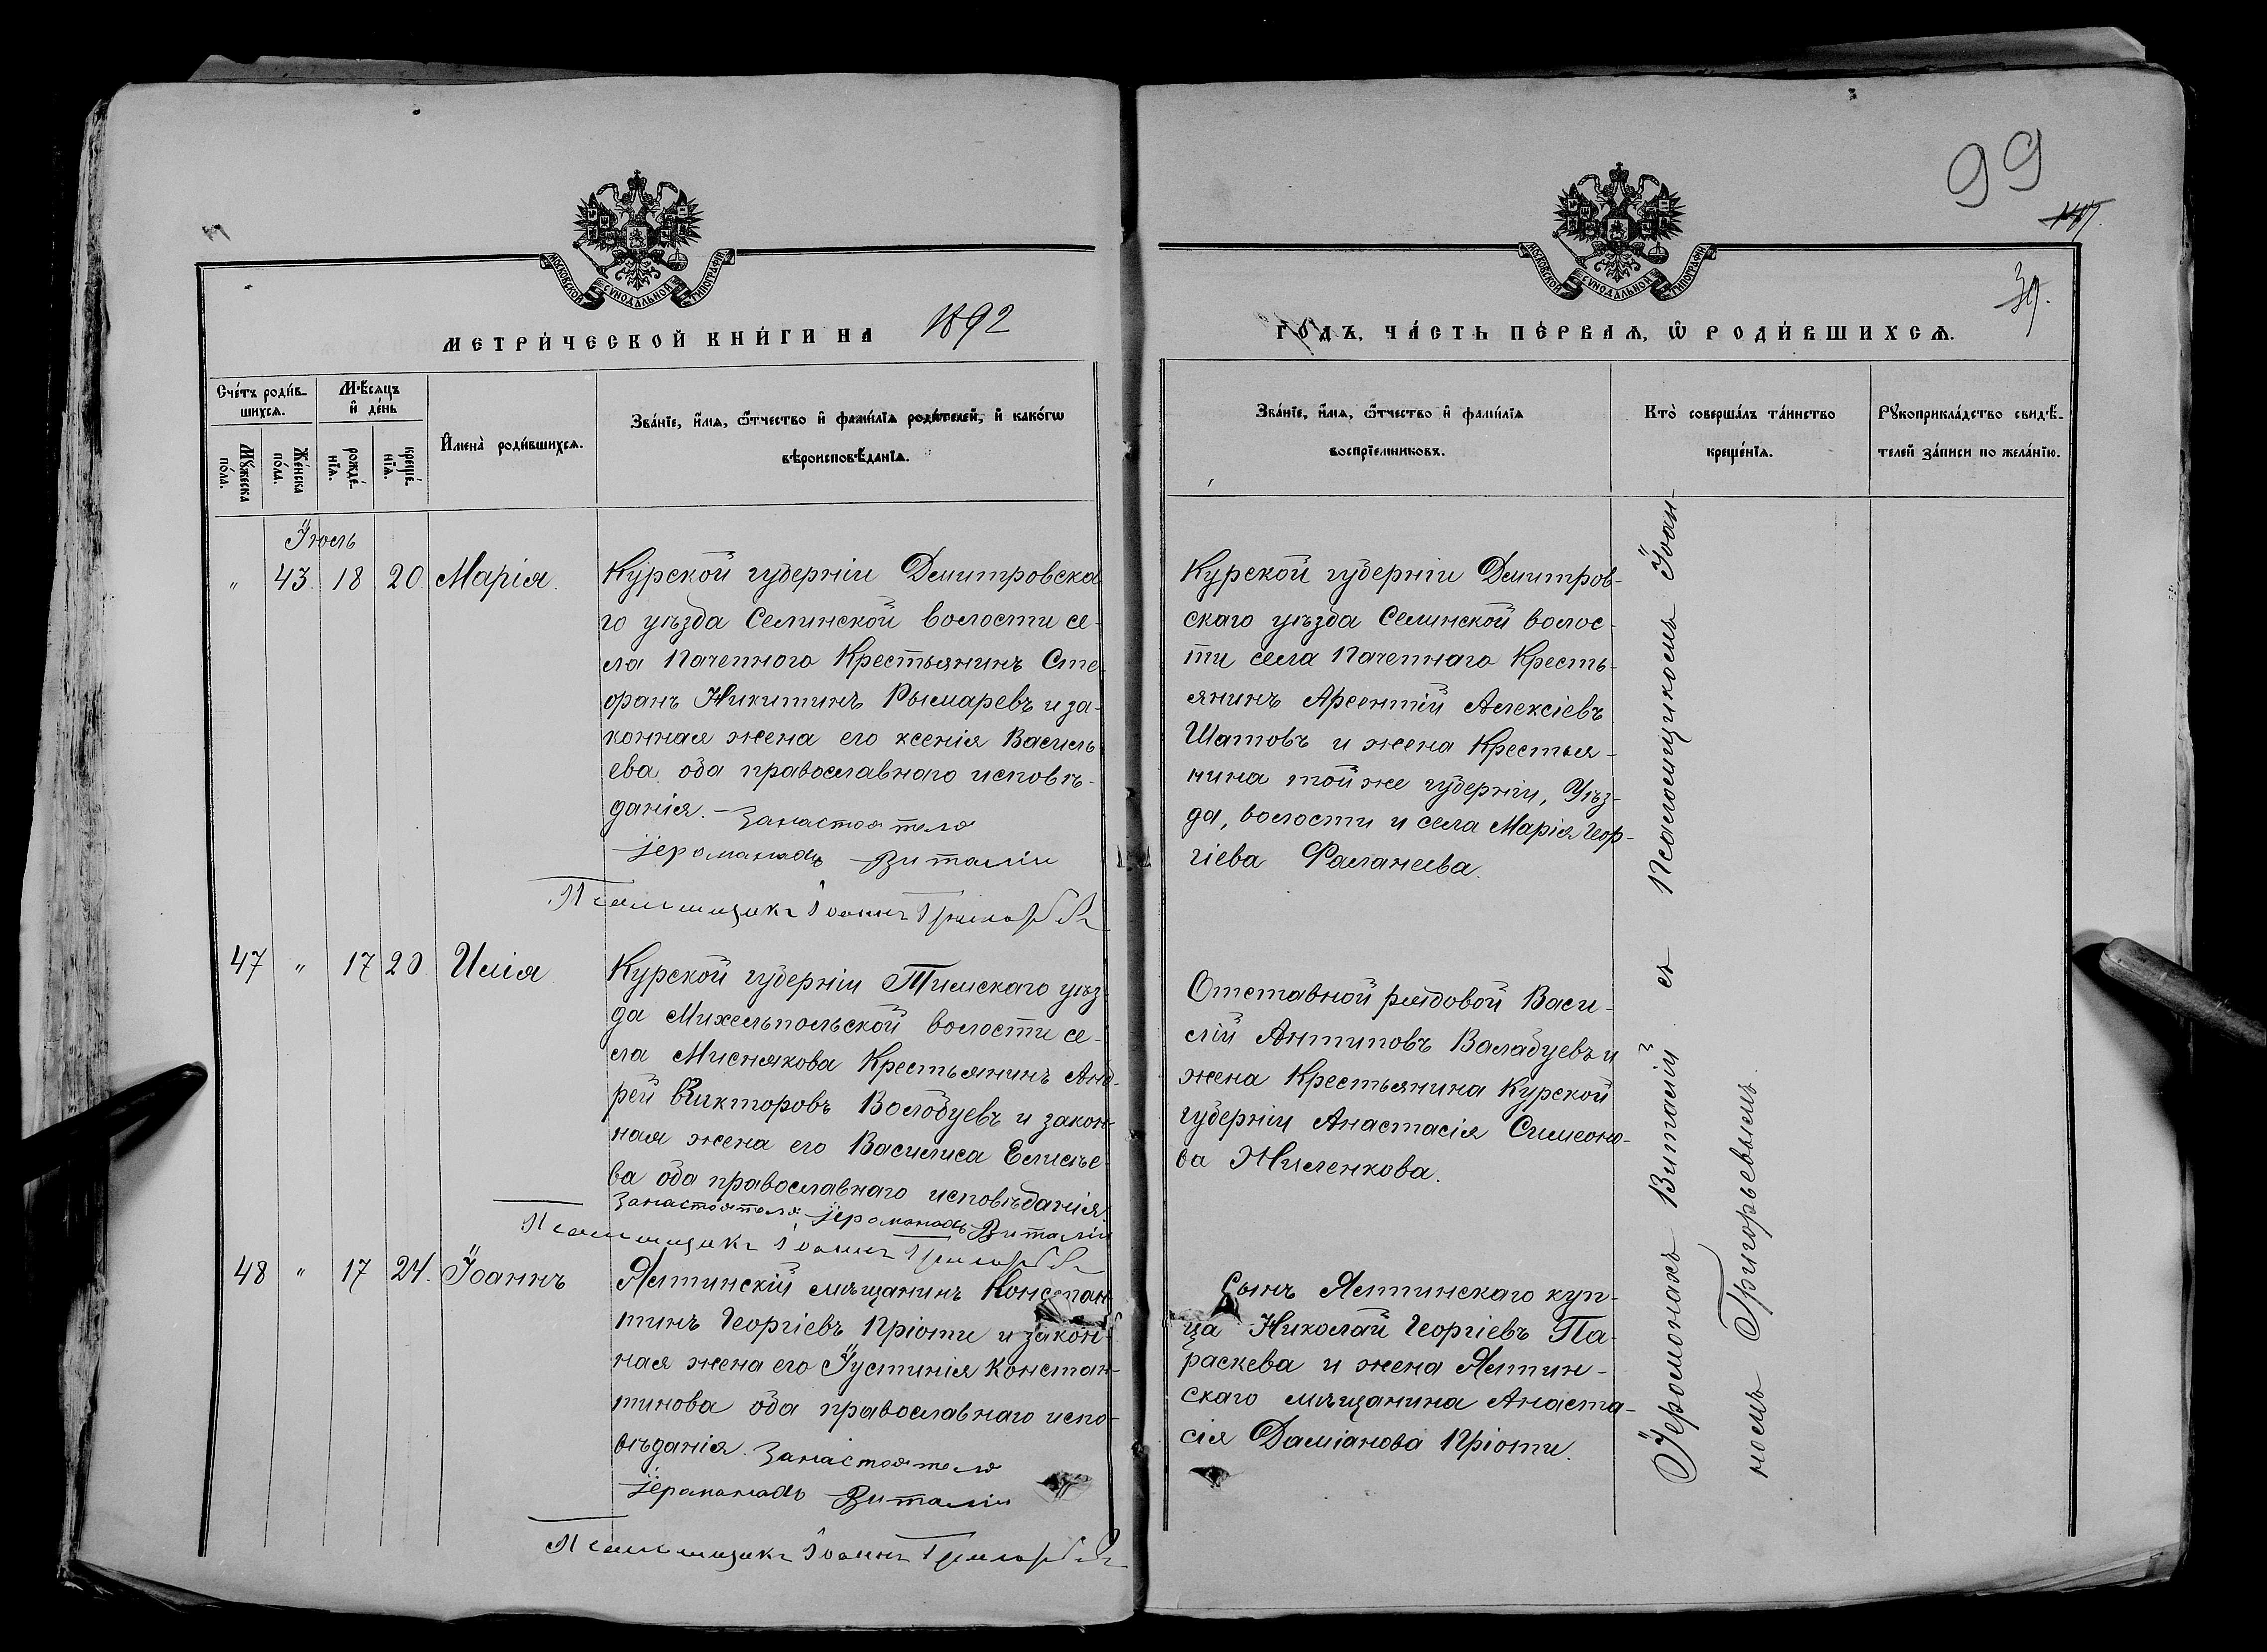 99
39.
МОСКОВСКОЙ СѴНОДАЛЬНОЙ ТИПОГРАФІИ
МЕТРИ́ЧЕСКОЙ КНИ́ГИ НА 1892
Сче́тъ роди́в-
шихсѧ.
Мѣ́сѧцъ
и҆ де́нь
Мꙋ́жеска
по́ла.
Же́нска
по́ла.
рожде́-
нїѧ.
креще́-
нїѧ.
И҆мена̀ роди́вшихсѧ.
Зва́нїе, и҆́мѧ, ѻ҆́тчество и҆ фами́лїѧ роди́телей, и҆ како́гѡ
вѣроисповѣ́данїѧ.
Іюль
" 43. 18 20. Марія.
Курской губерніи Дмитровска
го уѣзда Селинской волости се-
ла Пачепного Крестьянинъ Сте-
фанъ Никитинъ Рымаревъ и за-
конная жена его Ксенія Василь-
ева, оба православнаго исповѣ-
данія. — За настоятеля
іеромонахъ Виталій
Псаломщикъ Іоаннъ Григорьевъ
47 " 17 20 Илія
Курской губерніи Тимскаго уѣз-
да Михельпольской волости се-
ла Мисникова Крестьянинъ Анд-
рей Викторовъ Волобуевъ и закон-
ная жена его Василиса Елисѣе-
ва оба православнаго исповѣданія
За настоятеля іеромонахъ Виталій
Псаломщикъ Іоаннъ Григорьевъ
48 " 17 24. Іоаннъ
Ялтинскій мѣщанинъ Констан-
тинъ Георгіевъ Пріоти и закон-
ная жена его Іустинія Констан-
тинова оба православнаго испо-
вѣданія. За настоятеля
іеромонахъ Виталій
Псаломщикъ Іоаннъ Григорьевъ
МОСКОВСКОЙ СѴНОДАЛЬНОЙ ТИПОГРАФІИ
ГО́ДЪ, ЧА́СТЬ ПЕ́РВАѦ, Ѡ҆ РОДИ́ВШИХСѦ.
Зва́нїе, и҆́мѧ, ѻ҆́тчество и҆ фами́лїѧ
воспрїе́мниковъ.
Кто̀ соверша́лъ та́инство
креще́нїѧ.
Рꙋкоприкла́дство свидѣ́-
телей за́писи по жела́нїю.
Курской губерніи Дмитров-
скаго уѣзда Селинской волос-
ти села Пачепнаго Кресть-
янинъ Арсентій Алексіевъ
Шатовъ и жена Крестья-
нина той же губерніи, Уѣз-
да, волости и села Марія Геор-
гіева Фаланеева.
Отставной рядовой Васи-
лій Антиповъ Валабуевъ и
жена Крестьянина Курской
губерніи Анастасія Симеоно-
ва Жиленкова.
Сынъ Ялтинскаго куп-
ца Николай Георгіевъ Па-
раскева и жена Ялтин-
скаго мѣщанина Анаста-
сія Даміанова Пріоти.
Іеромонахъ Виталій съ Псаломщикомъ Іоан-
номъ Григорьевымъ.